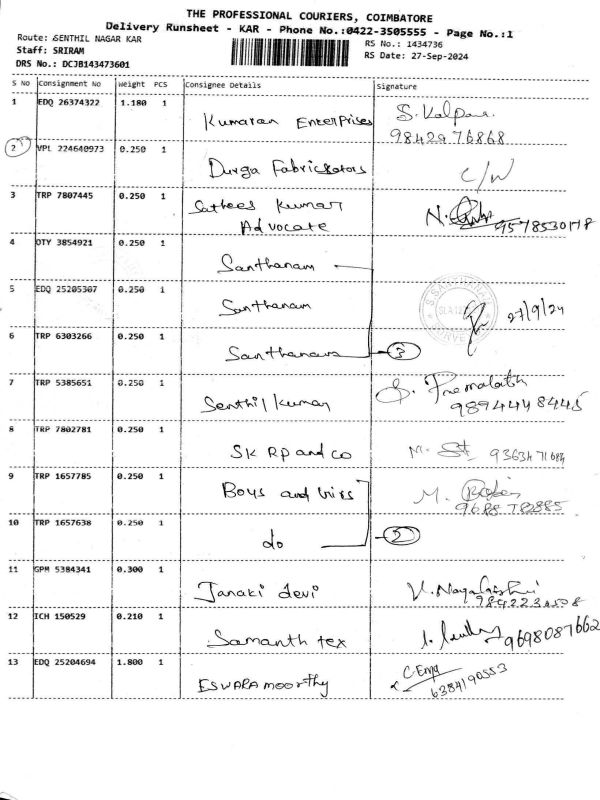 THE PROFESSIONAL COURIERS, COIMBATORE
Delivery Runsheet - KAR - Phone No.:0422-3505555 - Page No.:1
Route: SENTHIL NAGAR KAR
RS No.: 1434736
Staff: SRIRAM
RS Date: 27-Sep-2024
DRS No.: DCJB143473601
S No Consignment No Weight PCS Consignee Details Signature
1 EDQ 26374322 1.180 1 Kumaran Enterprises S. Kalpana
9842976868
2 VPL 224640973 0.250 1 Durga Fabricators C/W
3 TRP 7807445 0.250 1 Sathees Kumar N.
Advocate 9578530178
4 OTY 3854921 0.250 1 Santhanam
5 EDQ 25205307 0.250 1 Santhanam 27/9/24
6 TRP 6303266 0.250 1 Santhanam 3
7 TRP 5385651 0.250 1 Senthil Kumar S. Premalatha
9894448445
8 TRP 7802781 0.250 1 SK RP and co M. 9363471684
9 TRP 1657785 0.250 1 Boys and M.
9688782885
10 TRP 1657638 0.250 1 do 2
11 GPM 5384341 0.300 1 Janaki devi V.
12 ICH 150529 0.210 1 Samanth tex 9698087662
13 EDQ 25204694 1.800 1 ESWARAmoorthy
6384190553